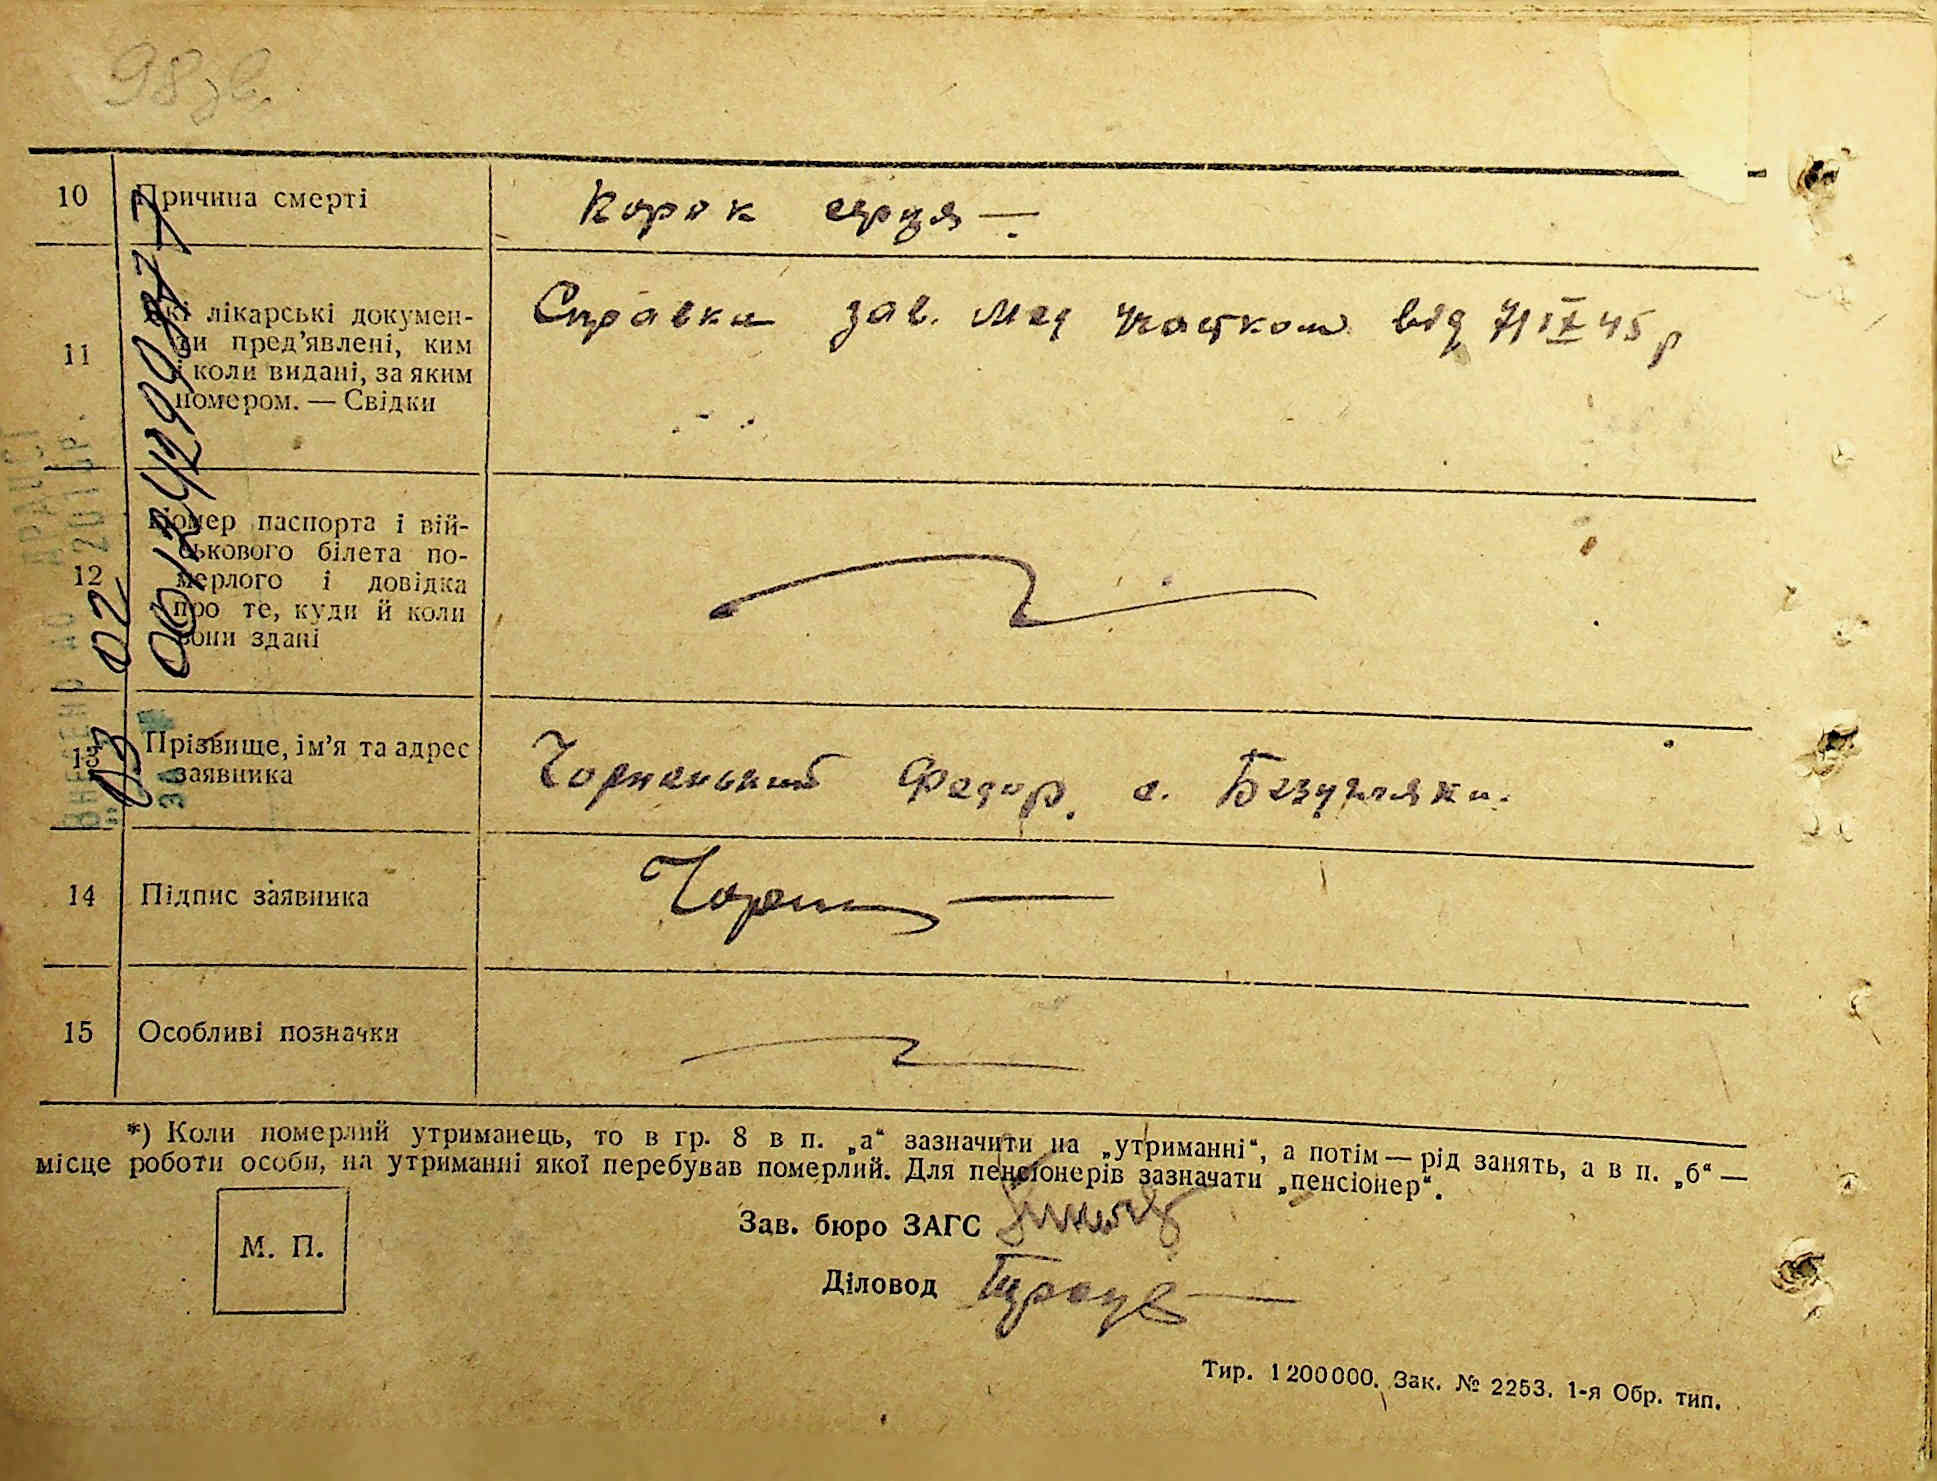 98 зв.
10 Причина смерті Порок серця —
11 Які лікарські докумен-
ти пред’явлені, ким
і коли видані, за яким
номером. — Свідки
Справка зав. мед участком від 7/IX 45 р
12 Номер паспорта і вій-
ськового білета по-
мерлого і довідка
про те, куди й коли
вони здані
13 Прізвище, ім’я та адрес
заявника
Чорненький Федор. с.
14 Підпис заявника
15 Особливі позначки
*) Коли померлий утриманець, то в гр. 8 в п. „а“ зазначити на „утриманні“, а потім — рід занять, а в п. „б“ —
місце роботи особи, на утриманні якої перебував померлий. Для пенсіонерів зазначати „пенсіонер“.
М. П.
Зав. бюро ЗАГС
Діловод
Тир. 1200000. Зак. № 2253. 1-я Обр. тип.